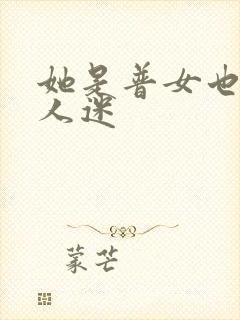 她是普女也
人迷
蒙芒